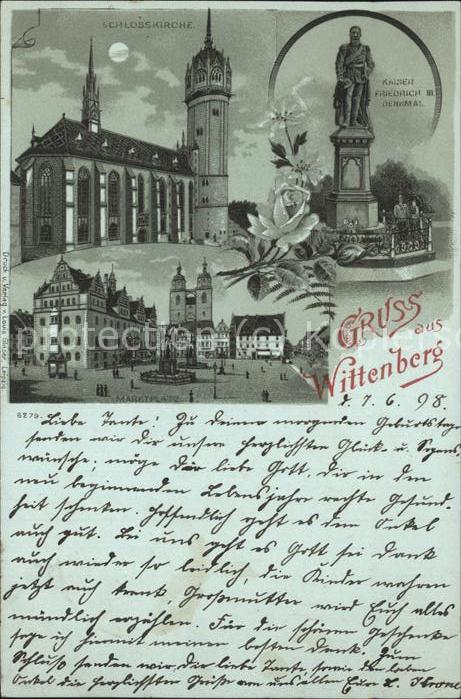 SCHLOSSKIRCHE.
KAISER
FRIEDRICH III
DENKMAL.
MARKTPLATZ.
Gruss
aus
Wittenberg
d. 7. 6. 98.
Druck u. Verlag v. Louis Glaser, Leipzig.
6279.
Liebe Tante! Zu Deinem morgenden Geburtstage
senden wir Dir unsere herzlichsten Glück- u. Segens-
wünsche; möge der liebe Gott, Dir in dem
neu beginnenden Lebensjahre rechte Gesund-
heit schenken. Hoffendlich geht es dem Onkel
auch gut. Bei uns geht es Gott sei Dank
auch wieder so leidlich, die Kinder wahren
jetzt auch krank, Großmutter wird Euch alles
mündlich erzählen. Für die schönen Geschenke
sage ich hiermit meinen besten Dank. Zum
Schluß senden wir Dir liebe Tante sowie dem lieben
Onkel die herzlichsten Grüße von uns allen Eure L.